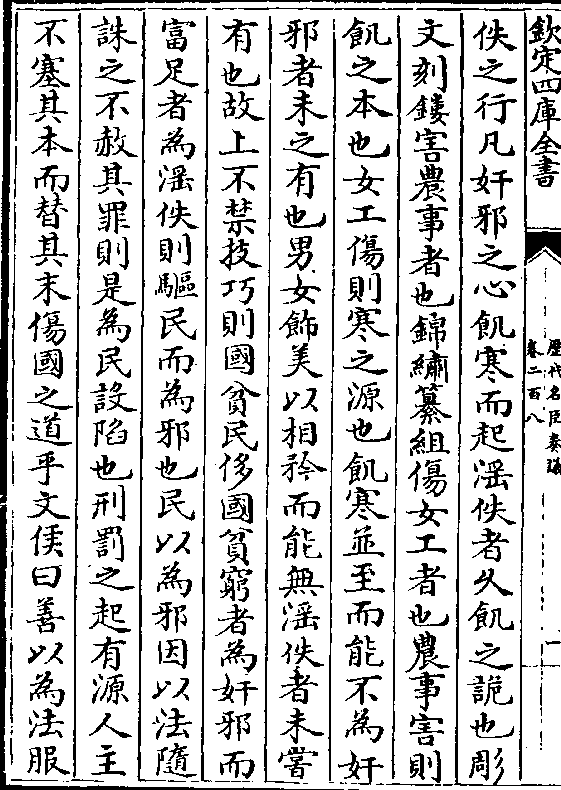 欽定四庫全書
歴代名臣奏議
卷二百八
一
佚之行凡奸邪之心飢寒而起淫佚者久飢之詭也彫
文刻鏤害農事者也錦繡纂組傷女工者也農事害則
飢之本也女工傷則寒之源也飢寒並至而能不為奸
邪者未之有也男女飾美以相矜而能無淫佚者未嘗
有也故上不禁技巧則國貧民侈國貧窮者為奸邪而
富足者為淫佚則驅民而為邪也民以為邪因以法隨
誅之不赦其罪則是為民設陷也刑罰之起有源人主
不塞其本而替其末傷國之道乎文侯曰善以為法服